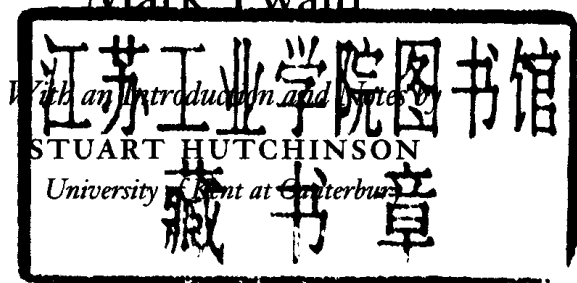 Mark Twain
江苏工业学院图书馆
With an Introduction and Notes by
STUART HUTCHINSON
University of Kent at Canterbury
藏书章